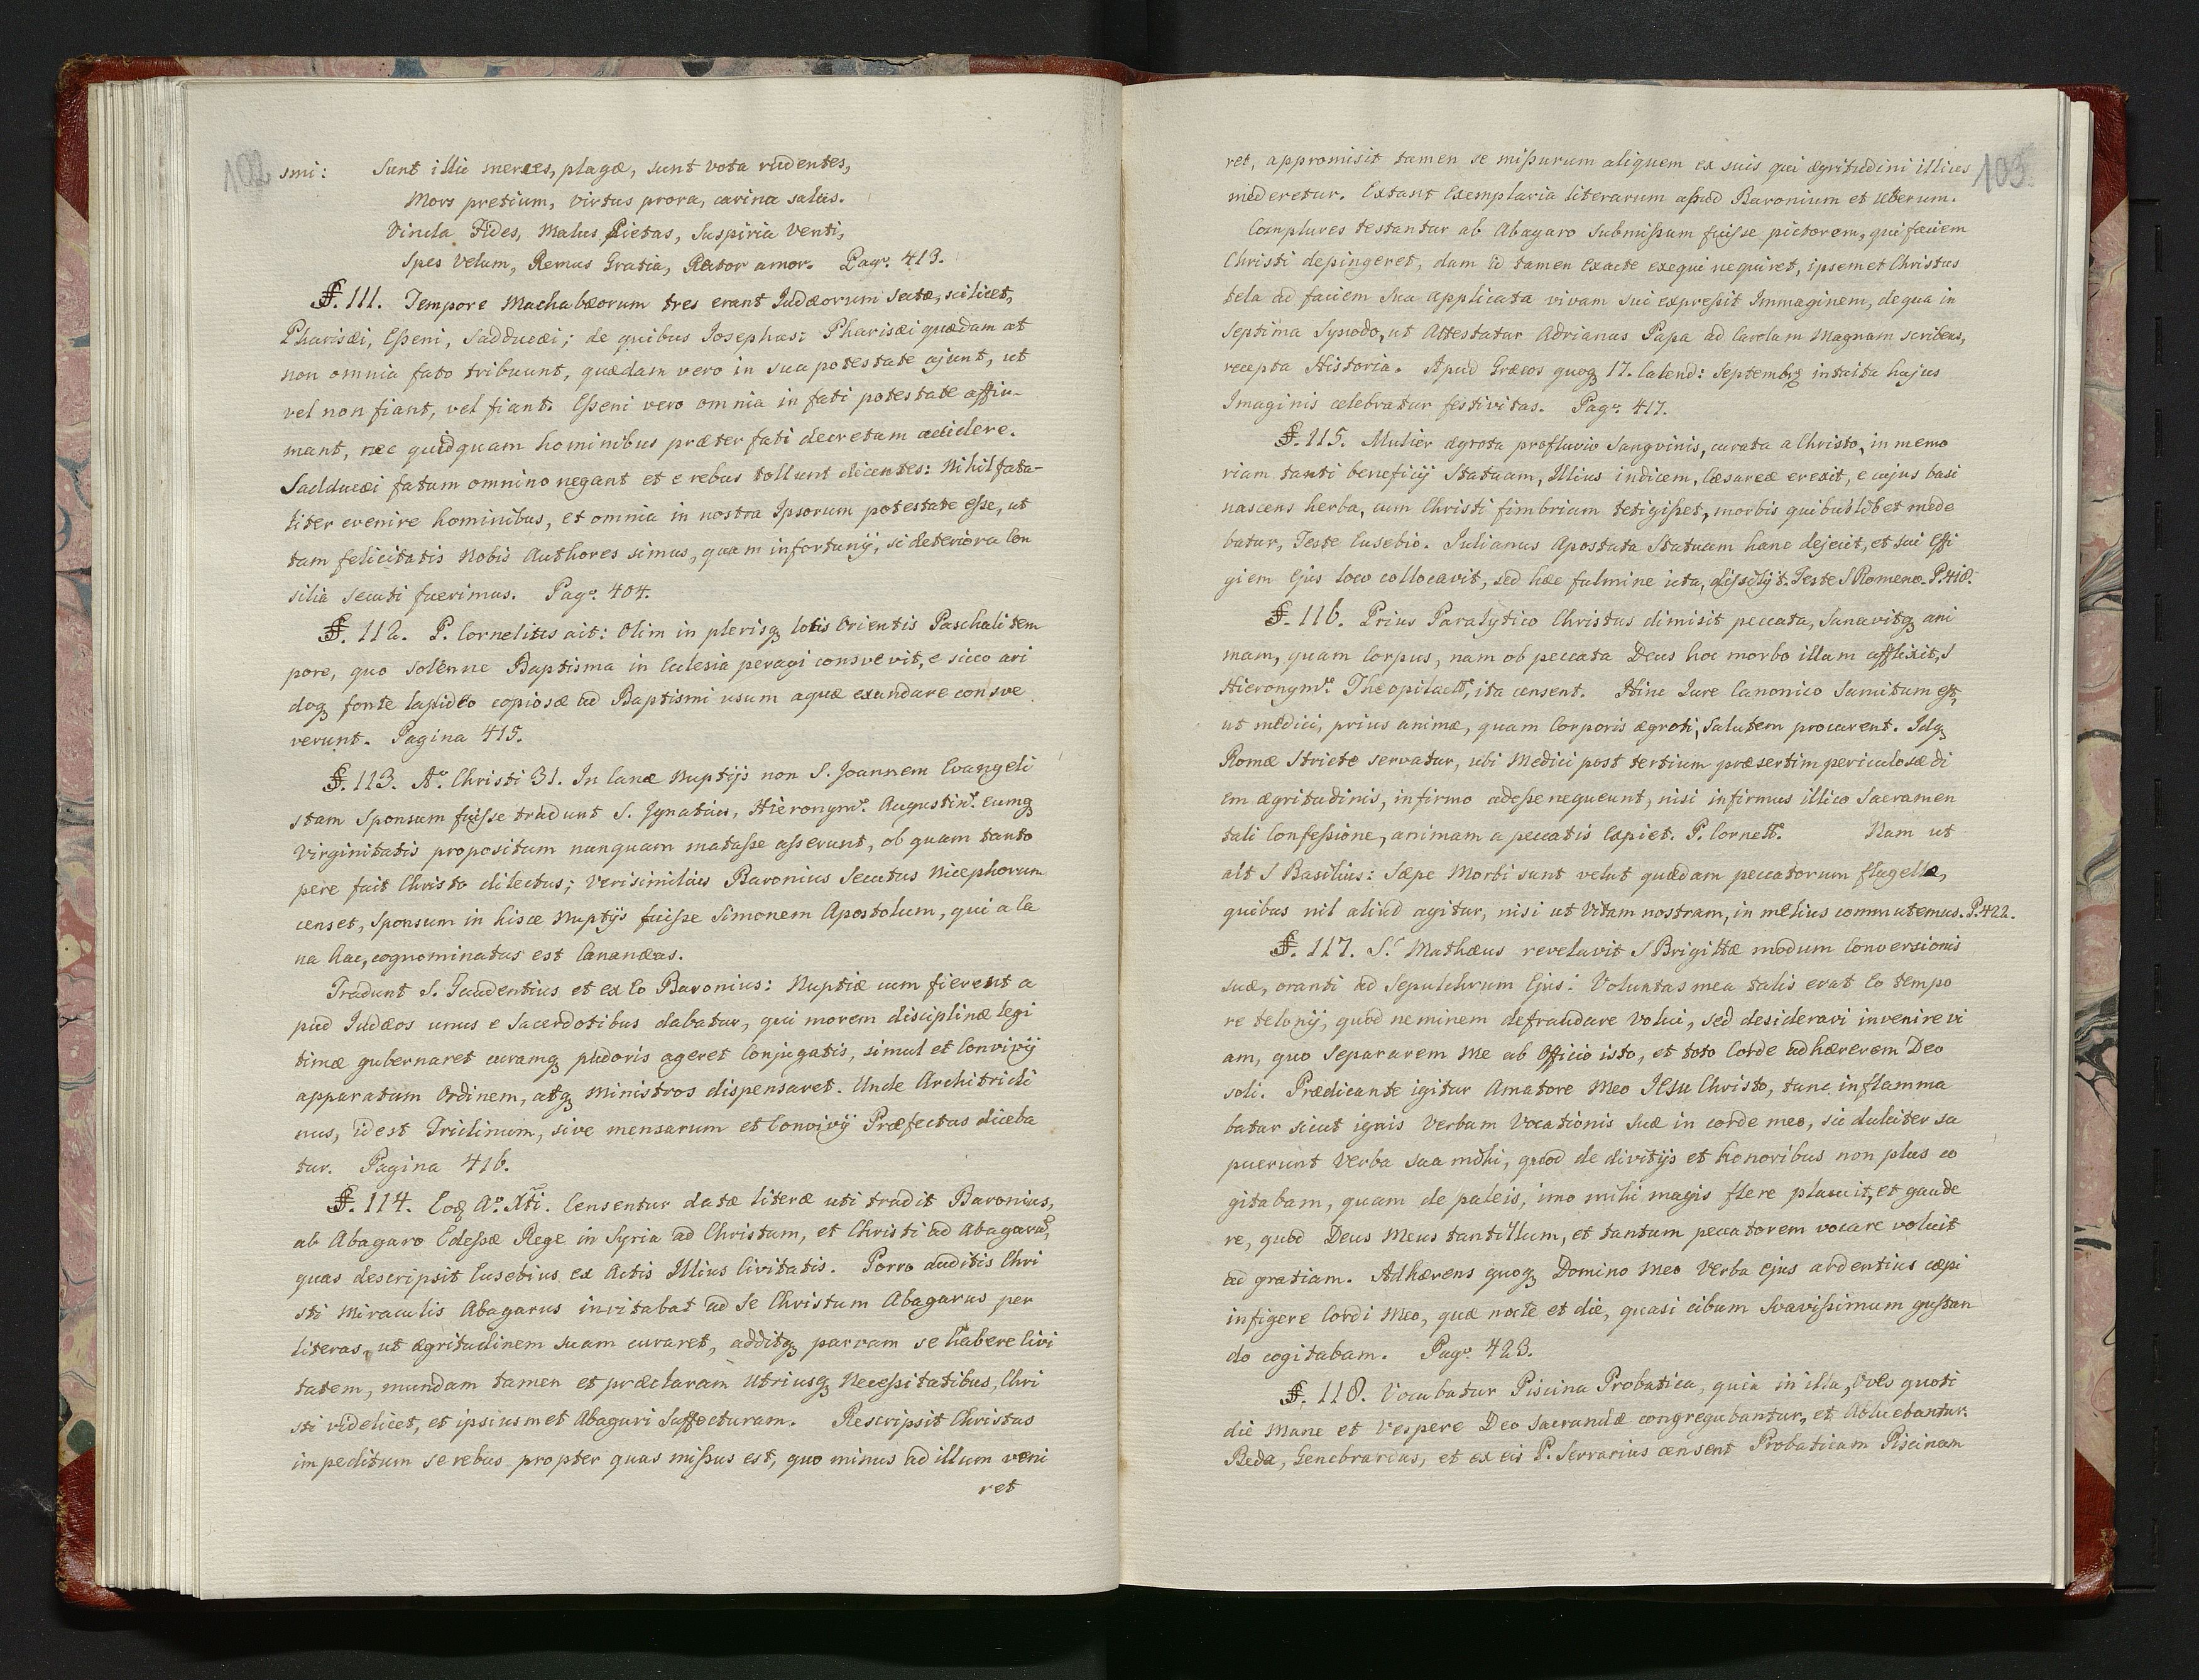 102
smi: Sunt illic merces, plagæ, sunt vota rudentes,
Mors pretium, virtus prora, carina salus.
Vincla Fides, Malus Pietas, Suspiria Venti,
Spes Velum, Remus Gratia, Rector amor. Pag. 413.
§. 111. Tempore Machabæorum tres erant Judæorum sectæ, scilicet,
Pharisæi, Eßeni, Sadducæi; de quibus Josephus: Pharisæi quædam at
non omnia fato tribuunt, quædam vero in sua potestate ajunt, ut
vel non fiant, vel fiant. Eßeni vero omnia in fati potestate affir-
mant, nec quidquam hominibus præter fati decretum accidere.
Sadducæi fatum omnino negant et e rebus tollunt dicentes: Nihil fata-
liter evenire hominibus, et omnia in nostra Ipsorum potestate eße, ut
tam felicitatis Nobis Authores simus, quam infortunij, si deteriora Con
silia Secuti fuerimus. Pago. 404.
§. 112. P. Cornelius ait: Olim in plerisq locis Orientis Paschali tem
pore, quo Solenne Baptisma in Eclesia peragi consvevit, e sicco ari
doq fonte lapideo copiosæ ad Baptismi usum aquæ exundare consve
verunt. Pagina 415.
§. 113. Ao. Christi 31. In Canæ Nuptijs non S. Joannem Evangeli
stam Sponsum fuiße tradunt S. Ignatius, Hieronym9. Augustin9. eumq
Virginitatis propositum nunquam mutaße aßerunt, ob quam tanto
pere fuit Christo dilectus; Verisimilius Baronius Secutus Nicephorum
censet, Sponsum in hisce Nuptijs fuiße Simonem Apostolum, qui a Ca
na hac, cognominatus est Cananæus.
Tradunt S. Gaudentius et ex Eo Baronius: Nuptiæ cum fierent a
pud Judæos unus e Sacerdotibus dabatur, qui morem disciplinæ legi
timæ gubernaret curamq pudoris ageret Conjugatis, simul et Convivij
apparatum Ordinem, atq Ministros dispensaret. Unde Architricli
nus, id est Triclinum, sive mensarum et Convivij Præfectus diceba
tur. Pagina 416.
§. 114. Eoq Ao. Xti. Censentur datæ literæ uti tradit Baronius,
ab Abagaro Edeßæ Rege in Syria ad Christum, et Christi ad Abagarũ,
quas descripsit Eusebius ex Actis Illius Civitatis. Porro auditis Chri
sti Miraculis Abagarus invitabat ad Se Christum Abagarus per
literas, ut ægritudinem suam curaret, additq parvam se habere Civi
tatem, mundam tamen et præclaram Utriusq Neceßitatibus, Chri
sti videlicet, et ipsiusmet Abagari Suffecturam. Rescripsit Christus
impeditum se rebus propter quas mißus est, quo minus ad illum veni
ret
103.
ret, appromisit tamen se mißurum aliquem ex suis qui ægritudini illius
mederetur. Extant Exemplaria literarum apud Baronium et uberum.
Complures testantur ab Abagaro Submißum fuiße pictorem, qui faciem
Christi depingeret, dum id tamen Exacte exequi nequiret, ipsemet Christus
tela ad faciem Sua applicata vivam sui expreßit Immaginem, de qua in
Septima Synodo, ut Attestatur Adrianus Papa ad Carolum Magnum scribens,
recepta Historia. Apud Græcos quoq 17. Calend: Septembr intuita hujus
Imaginis celebratur festivitas. Pago. 417.
§. 115. Mulier ægrota profluvio Sangvinis, curata a Christo, in memo
riam tanti beneficij Statuam, Illius indicem, Cæsareæ erexit, e cujus basi
nascens herba, cum Christi fimbriam tetigißet, morbis quibuslibet mede
batur, Teste Eusebio. Julianus Apostata Statuam hanc dejecit, et sui Effi
giem Ejus loco collocavit, sed hæc fulmine icta, dißilijt. Teste S Romeno. P. 418.
§. 116. Prius Paralytico Christus dimisit peccata, Sanavitq ani
mam, quam Corpus, nam ob peccata Deus hoc morbo illum afflixit, S
Hieronym9. Theopilact9, ita censent. Hinc Jure Canonico Sancitum est,
ut medici, prius animæ, quam Corporis ægroti, Salutem procurent. Idq
Romæ Stricte servatur, ubi Medici post tertium præsertim periculosæ di
em ægritudinis, infirmo adeße nequeunt, nisi infirmus illico Sacramen
tali Confeßione, animam a peccatis Expiet. P. Cornell9. Nam ut
ait S Basilius: Sæpe Morbi sunt velut quædam peccatorum flagella,
quibus nil aliud agitur, nisi ut Vitam nostram, in melius commutemus. P. 422.
§. 117. S. Mathæus revelavit S Brigittæ modum Conversionis
suæ, oranti ad Sepulchrum Ejus: Voluntas mea talis erat Eo tempo
re telonij, quod neminem defraudare Volui, sed desideravi invenire vi
am, quo Separarem me ab Officio isto, et toto Corde adhærerem Deo
soli. Prædicante igitur Amatore Meo JESu Christo, tunc inflamma
batur sicut ignis Verbum Vocationis Suæ in corde meo, sic dulciter sa
puerunt Verba sua mihi, quod de divitijs et honoribus non plus co
gitabam, quam de paleis, imo mihi magis flere placuit, et gaude
re, quod Deus Meus tantillum, et tantum peccatorem vocare voluit
ad gratiam. Adhærens quoq Domino Meo Verba ejus ardentius cæpi
infigere Cordi Meo, quæ nocte et die, quasi cibum Svavißimum gustan
do cogitabam. Pago. 423.
§. 118. Vocabatur Piscina Probatica, quia in illa, Oves quoti
die Mane et Vespere Deo Sacrandæ congregabantur, et Abluebantur.
Beda, Genebrardus, et ex eis P. Serrarius censent Probaticam Piscinam